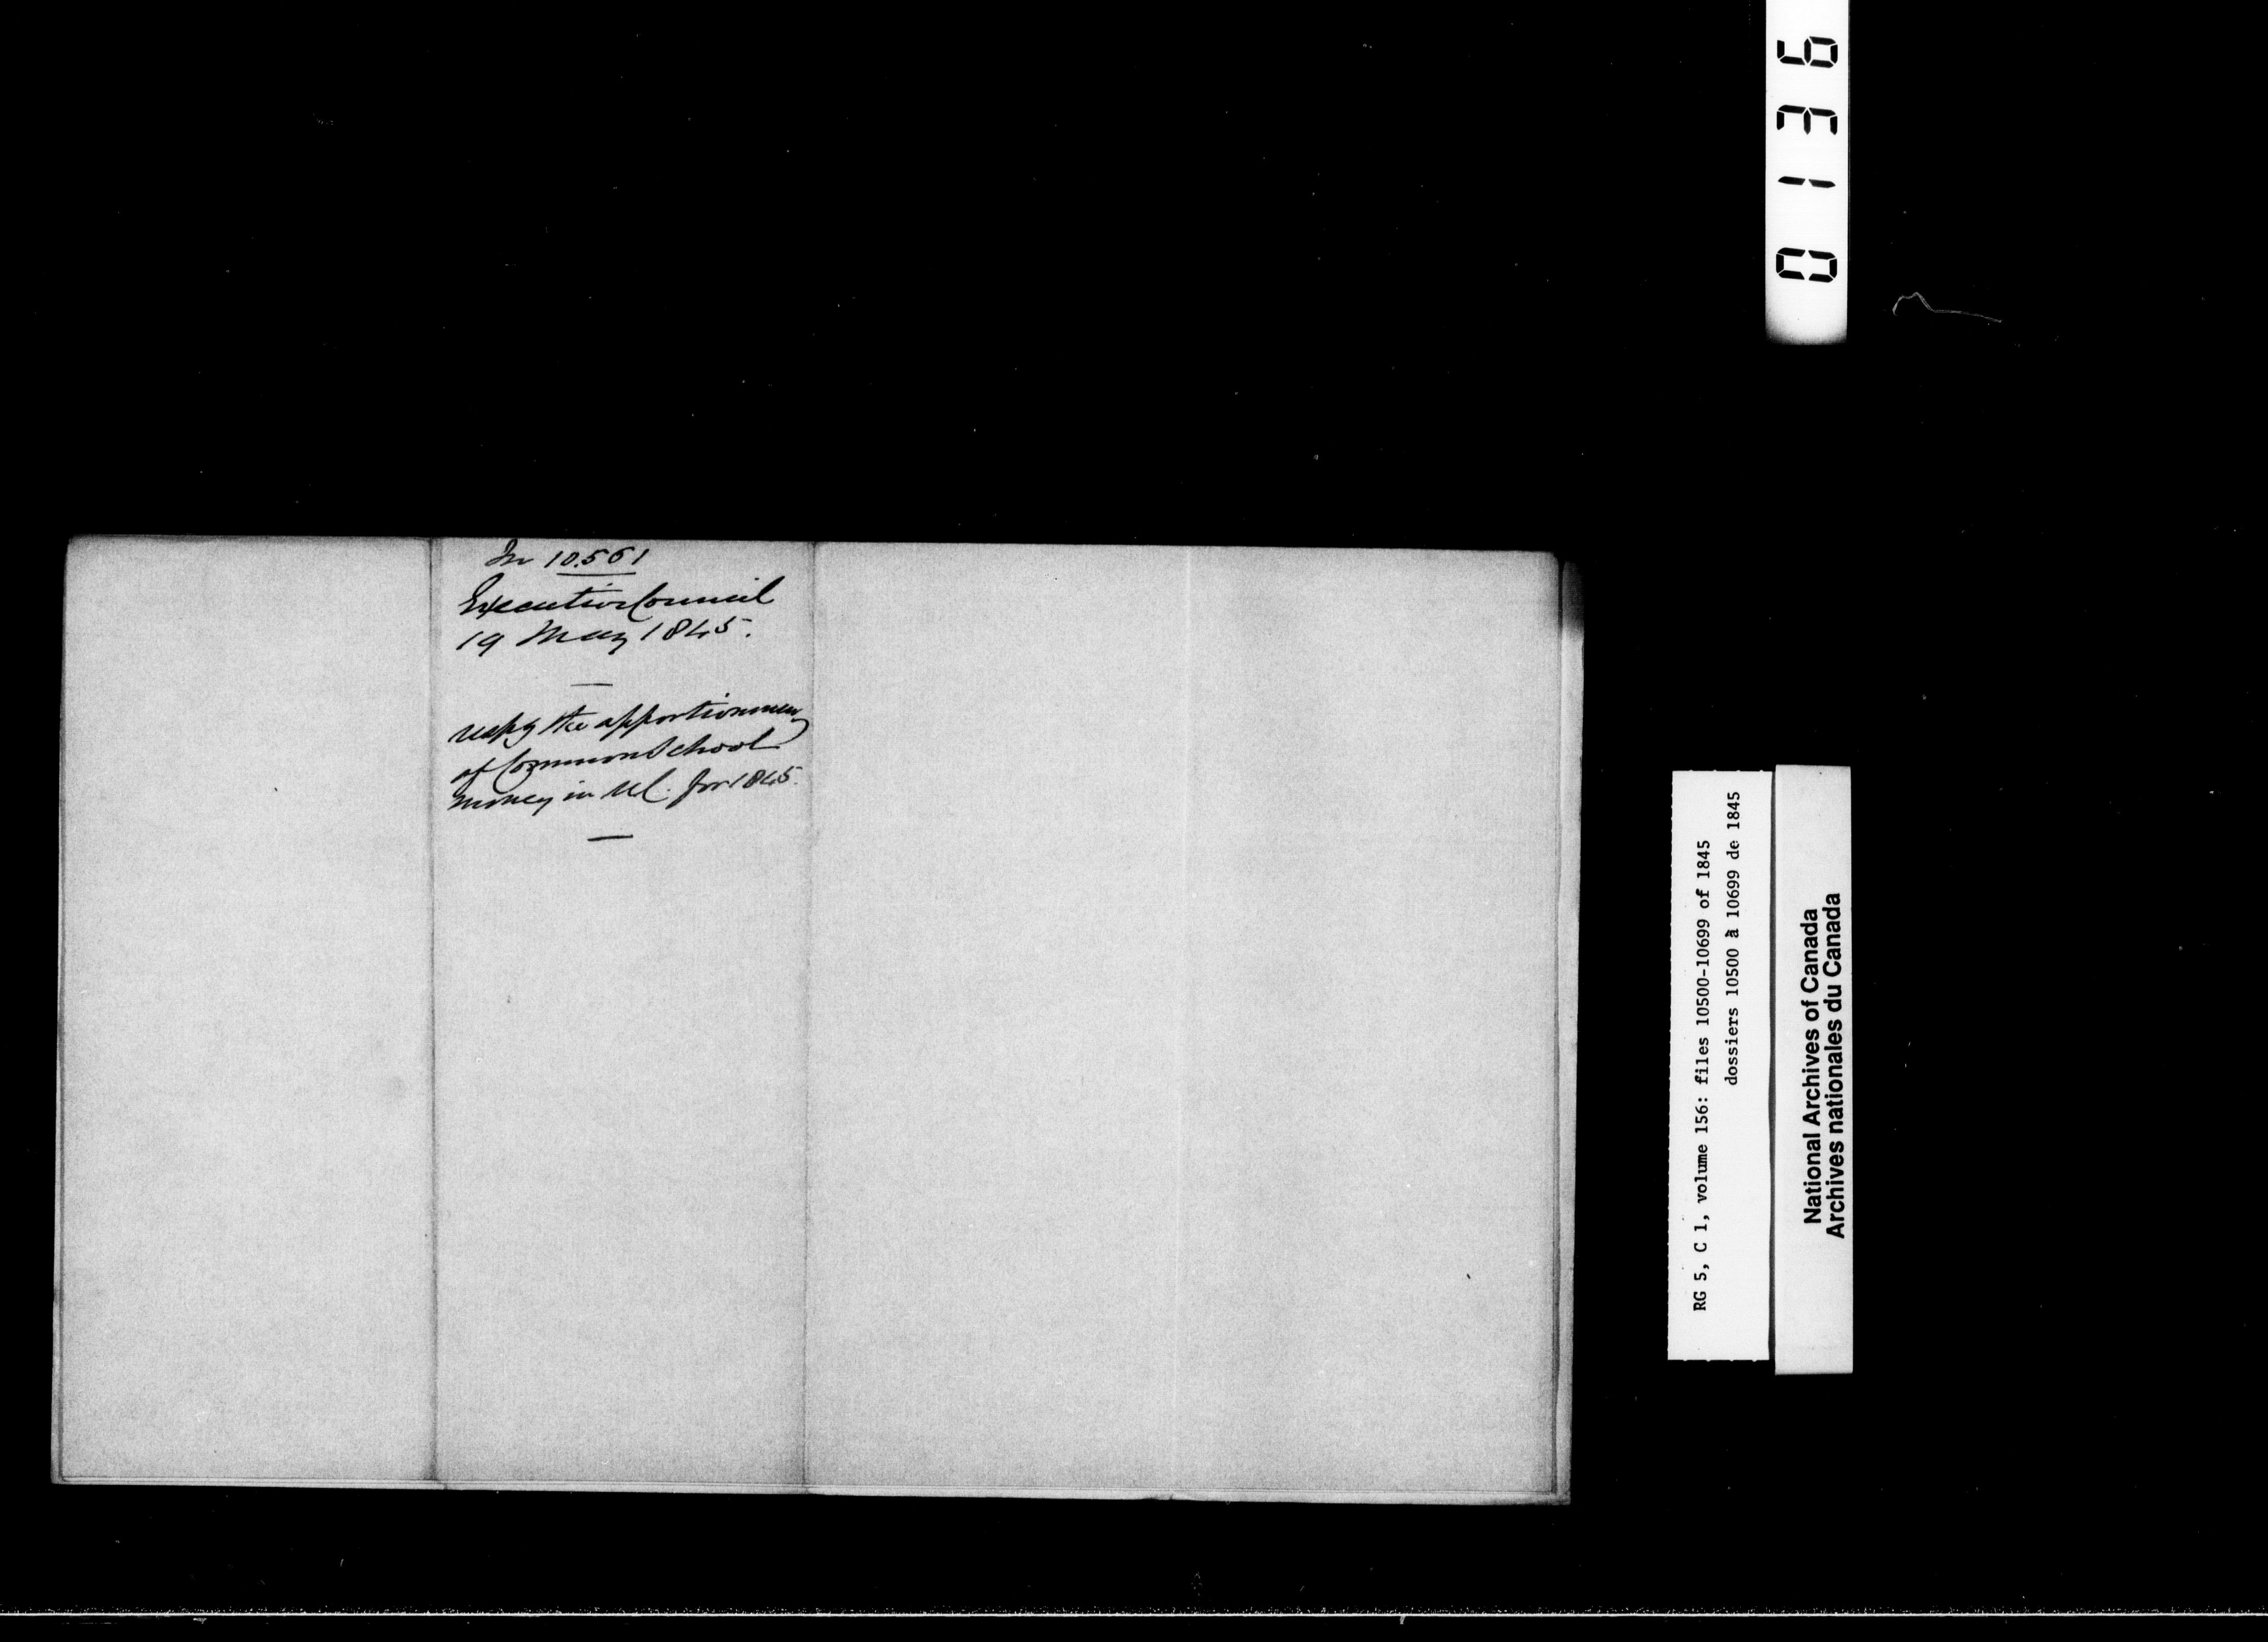 In 10.561
Executive Council
19 May 1845.
respg the apportionment
of Common School
money in UC. for 1845.
0136
RG 5, C 1, volume 156: files 10500-10699 of 1845
dossiers 10500 à 10699 de 1845
National Archives of Canada
Archives nationales du Canada